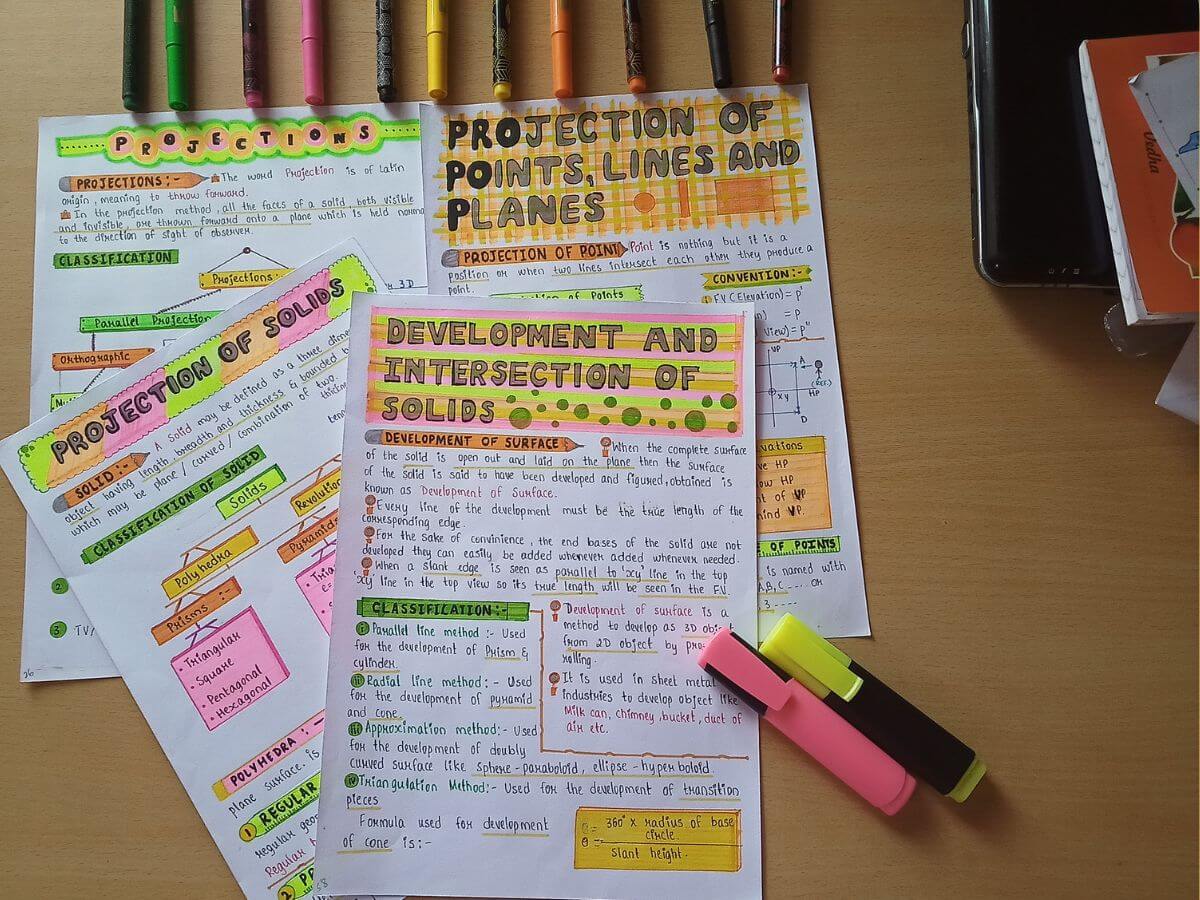 PROJECTIONS
PROJECTIONS :- The word Projection is of Latin
origin, meaning to throw forward.
In the projection method, all the faces of a solid, both visible
and invisible, are thrown forward onto a plane which is held
to the direction of sight of observer.
CLASSIFICATION
Projections:
3D
Parallel Projection
Orthographic
2
3 TV/
26
PROJECTION OF
POINTS, LINES AND
PLANES
PROJECTION OF POINT Point is nothing but it is a
position or when two lines intersect each other they produce a
point.
of Points
CONVENTION:-
F.V (Elevation) = p'
= p
View) = p"
VP
A
(REF.)
HP
xy
D
HP
HP
of VP
VP.
OF POINTS
is named with
A,B,C ---- or
3 ----
PROJECTION OF SOLIDS
SOLID :- A Solid may be defined as a three
object having length, breadth and thickness & bounded
which may be plane / curved / combination of two.
CLASSIFICATION OF SOLID
Solids
Polyhedra
Prisms :-
• Triangular
• Square
• Pentagonal
• Hexagonal
Pyramids
POLYHEDRA :-
plane surface. is
1 REGULAR
regular
Regular
2
DEVELOPMENT AND
INTERSECTION OF
SOLIDS
DEVELOPMENT OF SURFACE When the complete surface
of the solid is open out and laid on the plane then the surface
of the solid is said to have been developed and figured, obtained is
known as Development of Surface.
Every line of the development must be the true length of the
corresponding edge.
For the sake of convinience, the end bases of the solid are not
developed they can easily be added whenever added whenever needed.
When a slant edge is seen as parallel to 'xy' line in the top
'xy' line in the top view so its true length will be seen in the F.V.
CLASSIFICATION:-
i Parallel line method :- Used
for the development of Prism &
cylinder.
ii Radial line method: - Used
for the development of pyramid
and cone.
iii Approximation method:- Used
for the development of doubly
curved surface like sphere-paraboloid, ellipse-hyperboloid.
iv Triangulation Method:- Used for the development of transition
pieces
Formula used for development
of cone is:-
Development of surface is a
method to develop as 3D
from 2D object by
rolling.
It is used in sheet metal
industries to develop object like
Milk can, chimney, bucket, duct of
air etc.
θ = 360° X radius of base
circle.
slant height.
Vedha